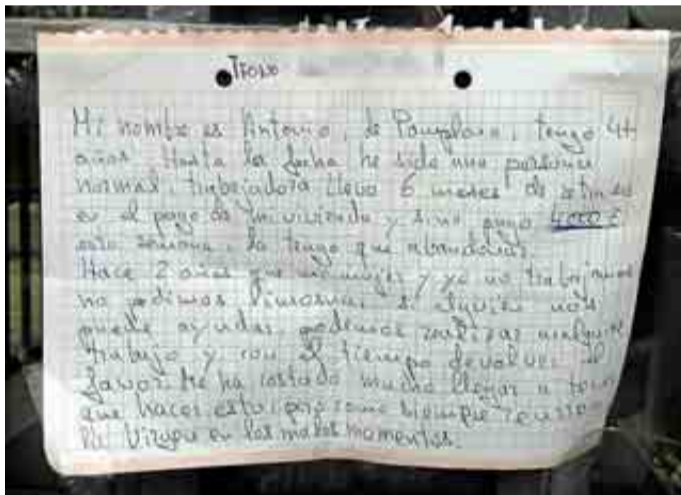 Tfono
Mi nombre es Antonio, de Pamplona, tengo 47
años. Hasta la fecha he sido una persona
normal, trabajadora llevo 6 meses de retraso
en el pago de mi vivienda y si no pago 4000 €
esta semana, la tengo que abandonar.
Hace 2 años que mi mujer y yo no trabajamos
no pedimos limosna, si alguien nos
puede ayudar, podemos realizar cualquier
trabajo y con el tiempo devolver el
favor. Me ha costado mucho llegar a tener
que hacer esto, pero como siempre recurro
la Virgen en los malos momentos.